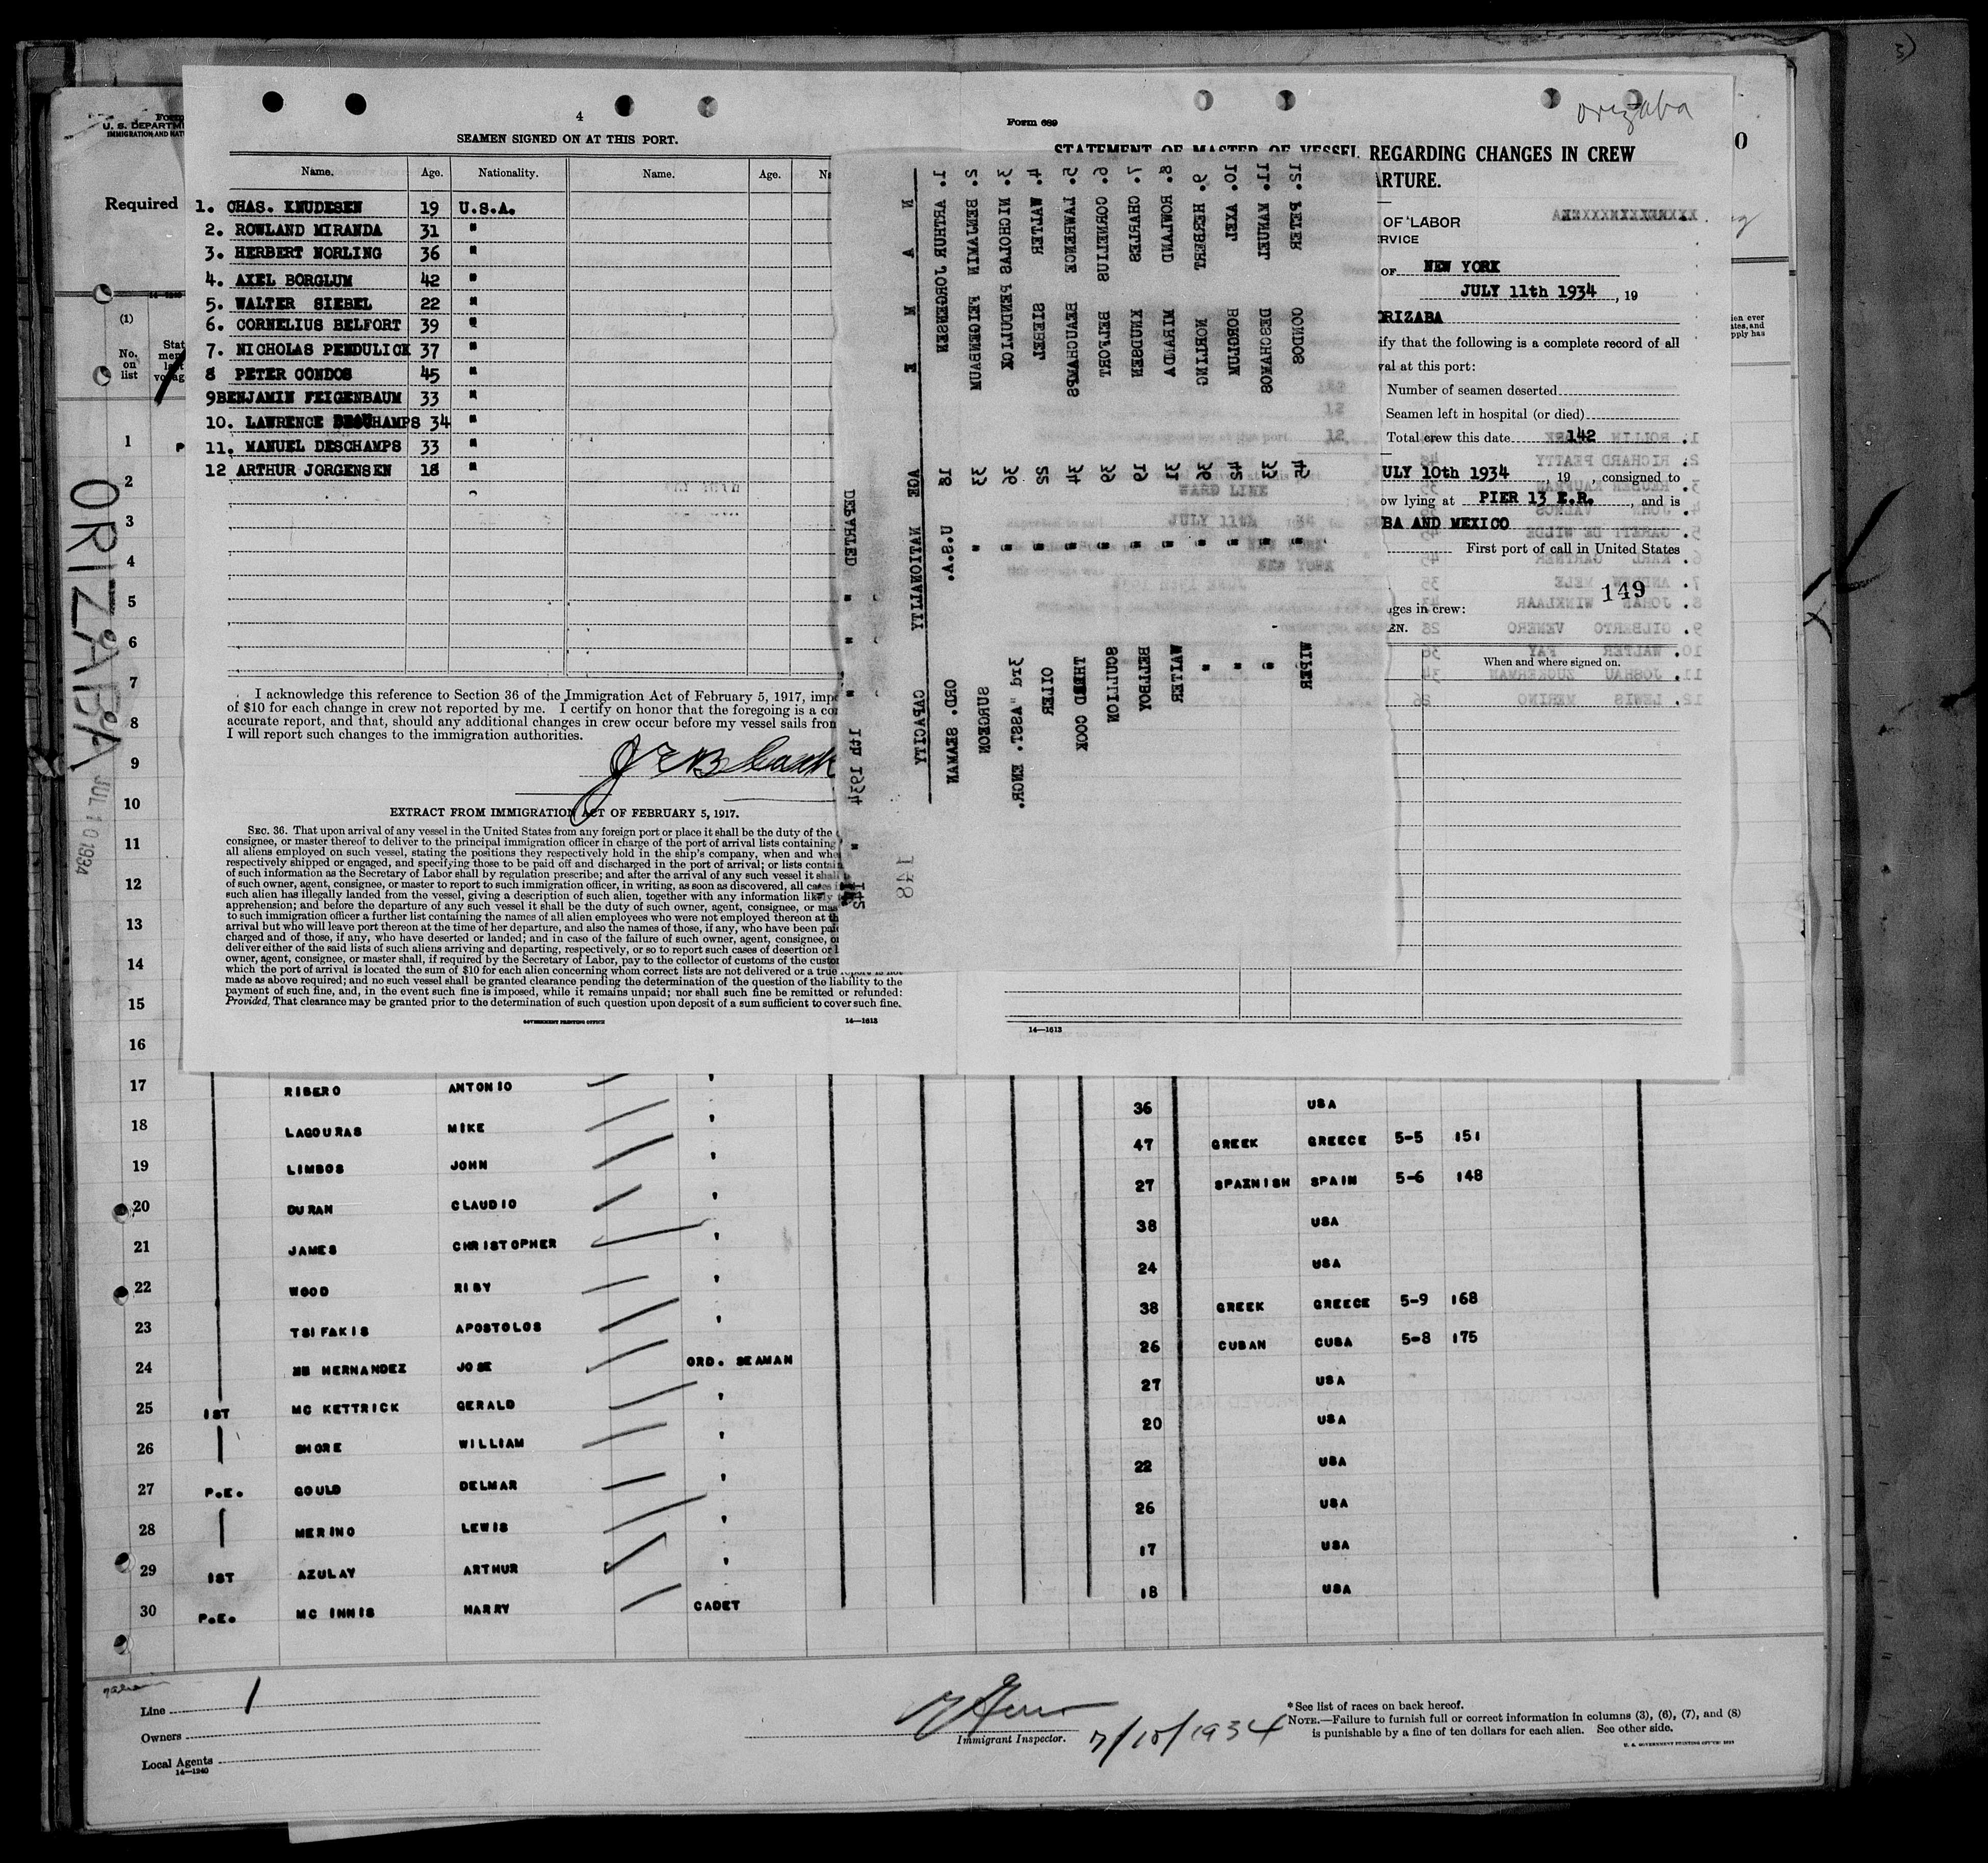 4
SEAMEN SIGNED ON AT THIS PORT.
Name. Age. Nationality. Name. Age.
1. CHAS. KNUDESEN 19 U.S.A.
2. ROWLAND MIRANDA 31 "
3. HERBERT NORLING 36 "
4. AXEL BORGLUM 42 "
5. WALTER SIEBEL 22 "
6. CORNELIUS BELFORT 39 "
7. NICHOLAS PENDULICK 37 "
8 PETER CONDOS 45 "
9BENJAMIN FEIGENBAUM 33 "
10. LAWRENCE BEAUCHAMPS 34 "
11. MANUEL DESCHAMPS 33 "
12 ARTHUR JORGENSEN 18 "
I acknowledge this reference to Section 36 of the Immigration Act of February 5, 1917,
of $10 for each change in crew not reported by me. I certify on honor that the foregoing is a
accurate report, and that, should any additional changes in crew occur before my vessel sails
I will report such changes to the immigration authorities.
EXTRACT FROM IMMIGRATION ACT OF FEBRUARY 5, 1917.
SEC. 36. That upon arrival of any vessel in the United States from any foreign port or place it shall be the duty of the
consignee, or master thereof to deliver to the principal immigration officer in charge of the port of arrival lists containing
all aliens employed on such vessel, stating the positions they respectively hold in the ship's company, when and
respectively shipped or engaged, and specifying those to be paid off and discharged in the port of arrival; or lists
of such information as the Secretary of Labor shall by regulation prescribe; and after the arrival of any such vessel it shall
of such owner, agent, consignee, or master to report to such immigration officer, in writing, as soon as discovered, all cases
such alien has illegally landed from the vessel, giving a description of such alien, together with any information likely
apprehension; and before the departure of any such vessel it shall be the duty of such owner, agent, consignee, or
to such immigration officer a further list containing the names of all alien employees who were not employed thereon at
arrival but who will leave port thereon at the time of her departure, and also the names of those, if any, who have been
charged and of those, if any, who have deserted or landed; and in case of the failure of such owner, agent, consignee,
deliver either of the said lists of such aliens arriving and departing, respectively, or so to report such cases of desertion or
owner, agent, consignee, or master shall, if required by the Secretary of Labor, pay to the collector of customs of the
which the port of arrival is located the sum of $10 for each alien concerning whom correct lists are not delivered or a true report is not
made as above required; and no such vessel shall be granted clearance pending the determination of the question of the liability to the
payment of such fine, and, in the event such fine is imposed, while it remains unpaid; nor shall such fine be remitted or refunded:
Provided, That clearance may be granted prior to the determination of such question upon deposit of a sum sufficient to cover such fine.
GOVERNMENT PRINTING OFFICE 14—1613
NAME AGE NATIONALITY CAPACITY
1. ARTHUR JORGENSEN 18 U.S.A. ORD. SEAMAN
2. BENJAMIN FEIGENBAUM 33 " SURGEON
3. NICHOLAS PENDULICK 36 " 3rd ASST. ENGR.
4. WALTER SIEBEL 22 " OILER
5. LAWRENCE BEAUCHAMPS 34 " THRED COOK
6. CORNELIUS BELFORT 39 " SCULLION
7. CHARLES KNUDSEN 19 " BELLBOY
8. ROWLAND MIRANDA 31 " WAITER
9. HERBERT NORLING 36 " "
10. AXEL BORGLUM 42 " "
11. MANUEL DESCHAMOS 33 " "
12. PETER CONDOS 45 " WIPER
DEPARTED
148
orizaba
Form 689
STATEMENT OF MASTER OF VESSEL REGARDING CHANGES IN CREW
OF LABOR
OF NEW YORK
JULY 11th 1934, 19
ORIZABA
that the following is a complete record of all
at this port:
Number of seamen deserted
Seamen left in hospital (or died)
Total crew this date 142
JULY 10th 1934, 19 , consigned to
lying at PIER 13 E.R., and is
AND MEXICO
First port of call in United States
149
in crew:
When and where signed on.
14—1613
Required
(1)
No. on list
ORIZABA
JUL 10 1934
1
2
3
4
5
6
7
8
9
10
11
12
13
14
15
16
17 RIBERO ANTONIO "
18 LAGOURAS MIKE " 36 USA
19 LIMBOS JOHN " 47 GREEK GREECE 5-5 151
20 DURAN CLAUDIO " 27 SPAZNISH SPAIN 5-6 148
21 JAMES CHRISTOPHER " 38 USA
22 WOOD RIBY " 24 USA
23 TSIFAKIS APOSTOLOS " 38 GREEK GREECE 5-9 168
24 HERNANDEZ JOSE ORD. SEAMAN 26 CUBAN CUBA 5-8 175
25 1ST MC KETTRICK GERALD " 27 USA
26 SHORE WILLIAM " 20 USA
27 P.E. GOULD DELMAR " 22 USA
28 MERINO LEWIS " 26 USA
29 1ST AZULAY ARTHUR " 17 USA
30 P.E. MC INNIS HARRY CADET 18 USA
Line
Owners
Local Agents
14—1240
Immigrant Inspector. 7/10/1934
*See list of races on back hereof.
NOTE.—Failure to furnish full or correct information in columns (3), (6), (7), and (8)
is punishable by a fine of ten dollars for each alien. See other side.